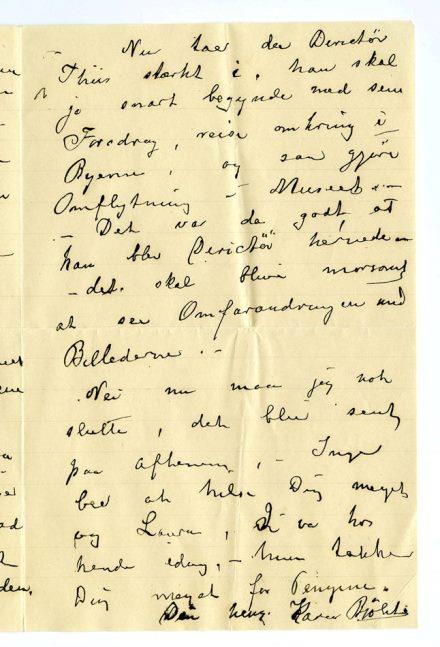 – Nu taer du Dirictør
Thiis stærkt i, han skal
jo snart begynde med sine
Foredrag, reise omkring i
Byerne, og saa gjøre
Omflytning i Museet. –
– Det var da godt, at
han blev Dirictör hernede –
– det skal blive morsomt
at see Omforandringen med
Billederne. –
Nei nu maa jeg nok
slutte, det blir sent
paa Aftenen, – Inger
ber at hilse Dig meget
og Laura, Vi va hos
hende idag, – hun takker
Dig meget for Pengene.
Din heng. Karen Bjølst